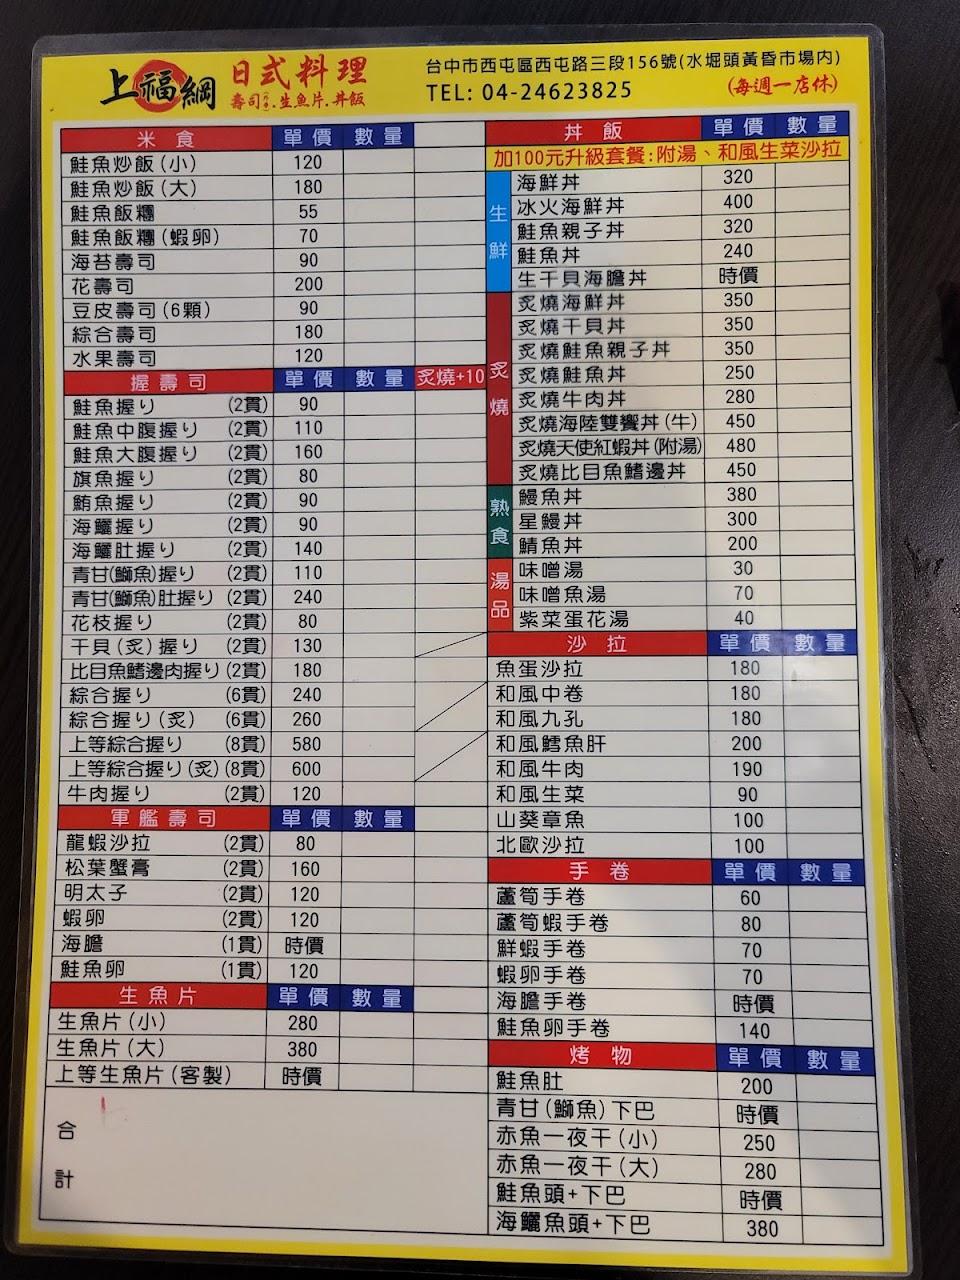 上福綱
日式料理
壽司.生魚片.丼飯
台中市西屯區西屯路三段156號(水堀頭黃昏市場內)
TEL: 04-24623825
(每週一店休)
米食 單價 數量
鮭魚炒飯(小) 120
鮭魚炒飯(大) 180
鮭魚飯糰 55
鮭魚飯糰(蝦卵) 70
海苔壽司 90
花壽司 200
豆皮壽司(6顆) 90
綜合壽司 180
水果壽司 120
握壽司 單價 數量 炙燒+10
鮭魚握り (2貫) 90
鮭魚中腹握り (2貫) 110
鮭魚大腹握り (2貫) 160
旗魚握り (2貫) 80
鮪魚握り (2貫) 90
海鱺握り (2貫) 90
海鱺肚握り (2貫) 140
青甘(鰤魚)握り (2貫) 110
青甘(鰤魚)肚握り (2貫) 240
花枝握り (2貫) 80
干貝(炙)握り (2貫) 130
比目魚鰭邊肉握り (2貫) 180
綜合握り (6貫) 240
綜合握り(炙) (6貫) 260
上等綜合握り (8貫) 580
上等綜合握り(炙) (8貫) 600
牛肉握り (2貫) 120
軍艦壽司 單價 數量
龍蝦沙拉 (2貫) 80
松葉蟹膏 (2貫) 160
明太子 (2貫) 120
蝦卵 (2貫) 120
海膽 (1貫) 時價
鮭魚卵 (1貫) 120
生魚片 單價 數量
生魚片(小) 280
生魚片(大) 380
上等生魚片(客製) 時價
合計
丼飯 單價 數量
加100元升級套餐:附湯、和風生菜沙拉
生鮮
海鮮丼 320
冰火海鮮丼 400
鮭魚親子丼 320
鮭魚丼 240
生干貝海膽丼 時價
炙燒
炙燒海鮮丼 350
炙燒干貝丼 350
炙燒鮭魚親子丼 350
炙燒鮭魚丼 250
炙燒牛肉丼 280
炙燒海陸雙饗丼(牛) 450
炙燒天使紅蝦丼(附湯) 480
炙燒比目魚鰭邊丼 450
熟食
鰻魚丼 380
星鰻丼 300
鯖魚丼 200
湯品
味噌湯 30
味噌魚湯 70
紫菜蛋花湯 40
沙拉 單價 數量
魚蛋沙拉 180
和風中卷 180
和風九孔 180
和風鱈魚肝 200
和風牛肉 190
和風生菜 90
山葵章魚 100
北歐沙拉 100
手卷 單價 數量
蘆筍手卷 60
蘆筍蝦手卷 80
鮮蝦手卷 70
蝦卵手卷 70
海膽手卷 時價
鮭魚卵手卷 140
烤物 單價 數量
鮭魚肚 200
青甘(鰤魚)下巴 時價
赤魚一夜干(小) 250
赤魚一夜干(大) 280
鮭魚頭+下巴 時價
海鱺魚頭+下巴 380